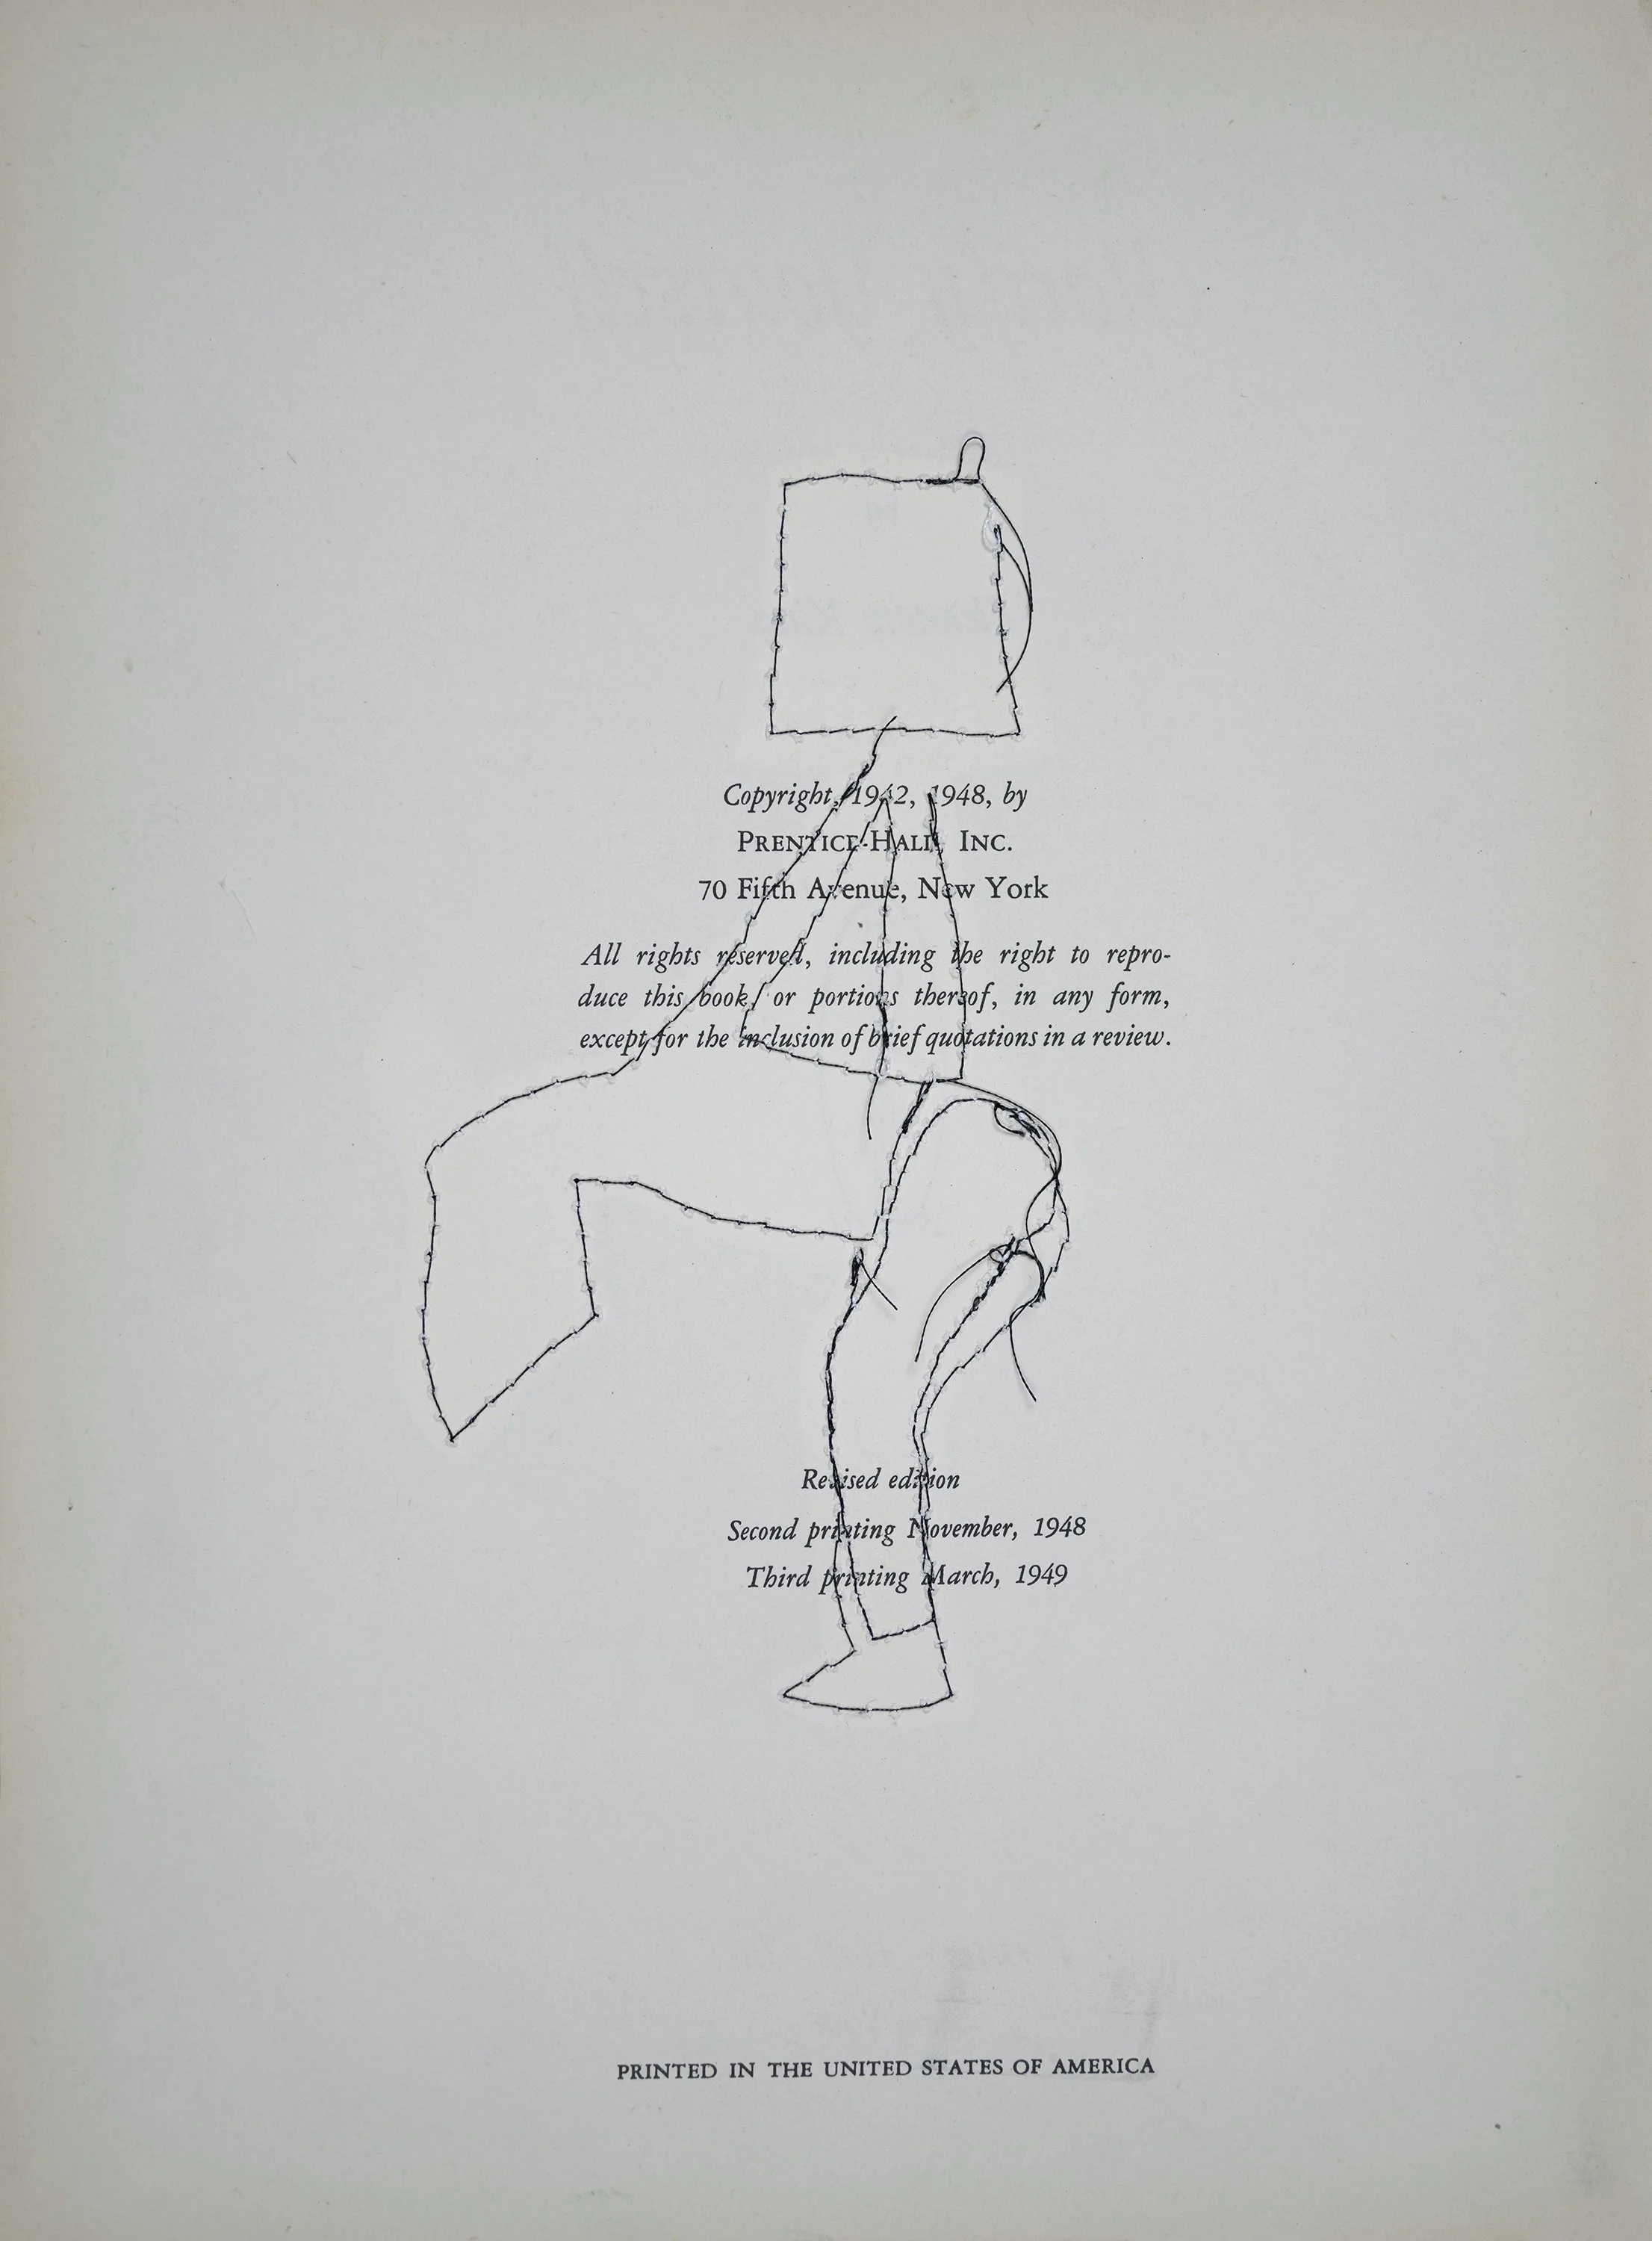 Copyright, 1942, 1948, by
PRENTICE-HALL, INC.
70 Fifth Avenue, New York
All rights reserved, including the right to repro-
duce this book, or portions thereof, in any form,
except for the inclusion of brief quotations in a review.
Revised edition
Second printing November, 1948
Third printing March, 1949
PRINTED IN THE UNITED STATES OF AMERICA